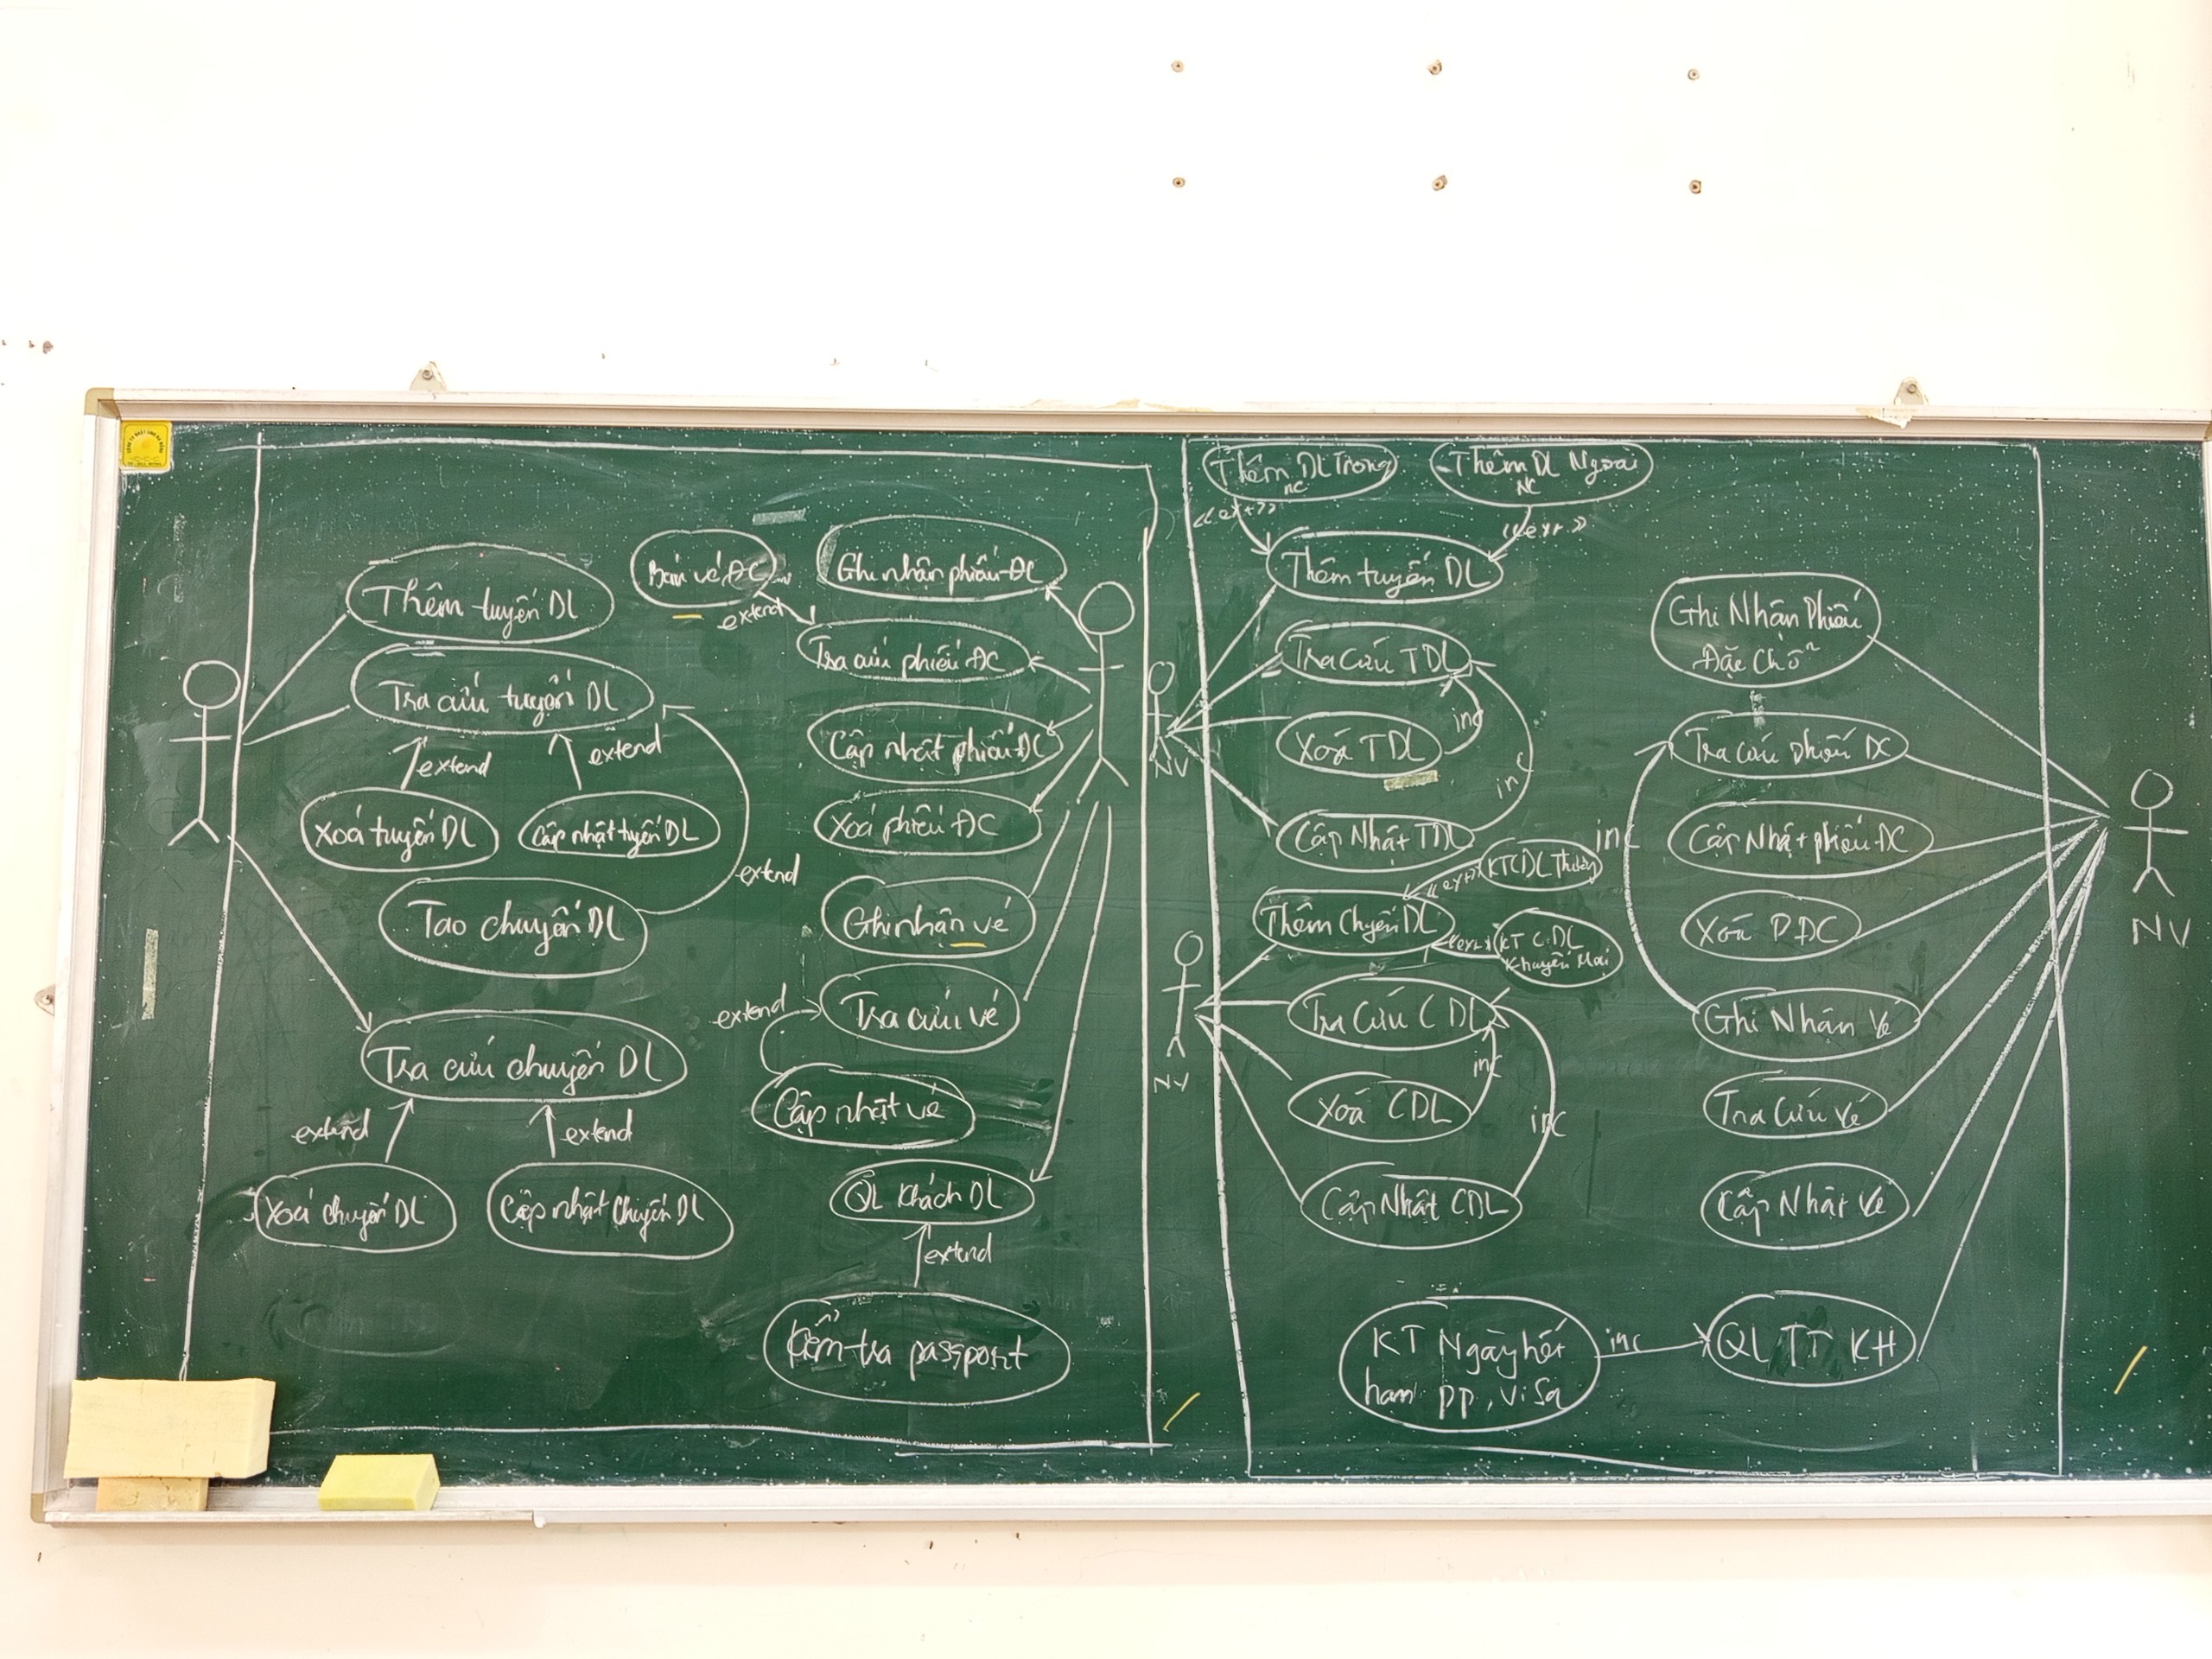 Thêm tuyến DL
Tra cứu tuyến DL
extend
extend
Xoá tuyến DL
Cập nhật tuyến DL
Tạo chuyến DL
extend
Tra cứu chuyến DL
extend
extend
Xoá chuyến DL
Cập nhật chuyến DL
Bán vé ĐC
extend
Ghi nhận phiếu ĐC
Tra cứu phiếu ĐC
Cập nhật phiếu ĐC
Xoá phiếu ĐC
Ghi nhận vé
extend
Tra cứu vé
Cập nhật vé
QL khách DL
extend
Kiểm tra passport
Thêm DL Trong
NC
Thêm DL Ngoài
NC
<<ext>>
<<ext>>
Thêm tuyến DL
Tra cứu TDL
inc
Xoá TDL
inc
Cập Nhật TDL
NV
<<ext>>
KTCDL Thường
Thêm Chyến DL
<<ext>>
KT CDL
Khuyến Mãi
Tra Cứu CDL
inc
Xoá CDL
inc
Cập Nhật CDL
NV
KT Ngày hết
hạn pp, visa
inc
QL TT KH
Ghi Nhận Phiếu
Đặt Chỗ
Tra cứu phiếu ĐC
inc
Cập Nhật phiếu ĐC
Xoá PĐC
Ghi Nhận Vé
Tra Cứu Vé
Cập Nhật Vé
NV